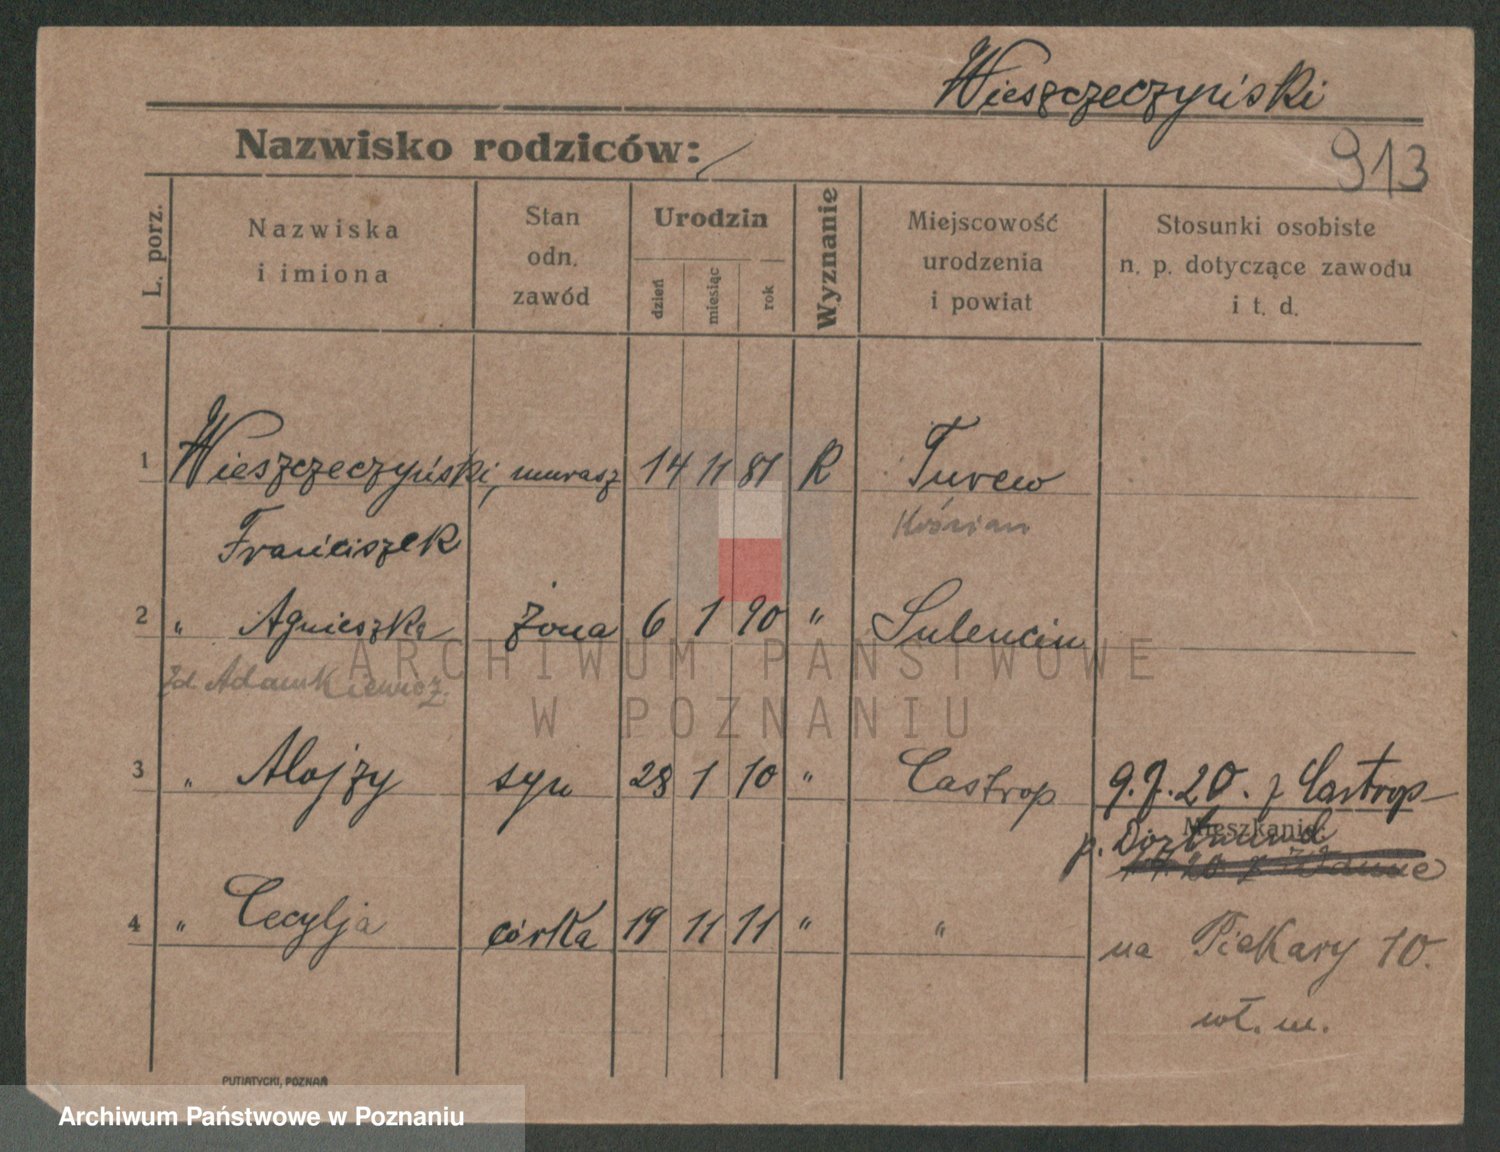 Wieszczeczyński
Nazwisko rodziców:
913
L. porz.
Nazwiska
i imiona
Stan
odn.
zawód
Urodzin
dzień
miesiąc
rok
Wyznanie
Miejscowość
urodzenia
i powiat
Stosunki osobiste
n. p. dotyczące zawodu
i t. d.
1 Wieszczeczyński, murasz 14 11 81 R Turew
Franciszek Kościan
2 " Agnieszka żona 6 1 90 " Sulencin
zd. Adamkiewicz
3 " Alojzy syn 28 1 10 " Castrop 9.7.20. z Castrop
Mieszkanie:
p. Dortmund
20 z Wanne
4 " Cecylja córka 19 11 11 " " na Piekary 10.
wł. m.
PUTIATYCKI, POZNAŃ
ARCHIWUM PAŃSTWOWE
W POZNANIU
Archiwum Państwowe w Poznaniu